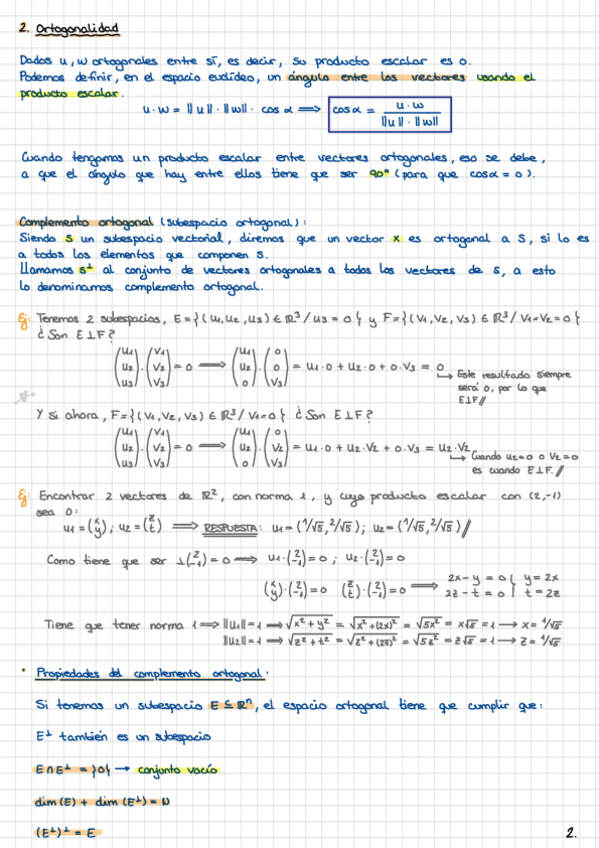 2. Ortogonalidad
Dados u, w ortogonales entre sí, es decir, su producto escalar es 0.
Podemos definir, en el espacio euclídeo, un ángulo entre los vectores usando el
producto escalar.
u·w = ||u||·||w||· cos α ⟹ cos α = u·w / ||u||·||w||
Cuando tengamos un producto escalar entre vectores ortogonales, eso se debe,
a que el ángulo que hay entre ellos tiene que ser 90° (para que cos α = 0).
Complemento ortogonal (subespacio ortogonal):
Siendo S un subespacio vectorial, diremos que un vector x es ortogonal a S, si lo es
a todos los elementos que componen S.
Llamamos S⊥ al conjunto de vectores ortogonales a todos los vectores de S, a esto
lo denominamos complemento ortogonal.
Ej: Tenemos 2 subespacios, E={(u1,u2,u3) ∈ R³/ u3=0} y F={(V1,V2,V3) ∈ R³/ V1=V2=0}
¿Son E⊥F?
(u1 u2 u3)·(V1 V2 V3)=0 ⟹ (u1 u2 0)·(0 0 V3) = u1·0 + u2·0 + 0·V3 = 0
↳ Este resultado siempre
será 0, por lo que
E⊥F//
Y si ahora, F={(V1,V2,V3) ∈ R³/ V1=0} ¿Son E⊥F?
(u1 u2 u3)·(V1 V2 V3)=0 ⟹ (u1 u2 0)·(0 V2 V3) = u1·0 + u2·V2 + 0·V3 = u2·V2
↳ Cuando u2=0 o V2=0
es cuando E⊥F.//
Ej: Encontrar 2 vectores de R², con norma 1, y cuyo producto escalar con (2,-1)
sea 0:
u1=(x y); u2=(z t) ⟹ RESPUESTA: u1=(1/√5, 2/√5); u2=(1/√5, 2/√5)//
Como tiene que ser ⊥(2 -1)=0 ⟹ u1·(2 -1)=0; u2·(2 -1)=0
(x y)·(2 -1)=0 (z t)·(2 -1)=0 ⟹ 2x-y=0 2z-t=0 } y=2x t=2z
Tiene que tener norma 1 ⟹ ||u1||=1 ⟹ √x²+y² = √x²+(2x)² = √5x² = x√5 = 1 → x=1/√5
||u2||=1 ⟹ √z²+t² = √z²+(2z)² = √5z² = z√5 = 1 → z=1/√5
• Propiedades del complemento ortogonal:
Si tenemos un subespacio E ⊆ Rⁿ, el espacio ortogonal tiene que cumplir que:
E⊥ también es un subespacio
E ∩ E⊥ = {0} → conjunto vacío
dim(E) + dim(E⊥) = N
(E⊥)⊥ = E
2.